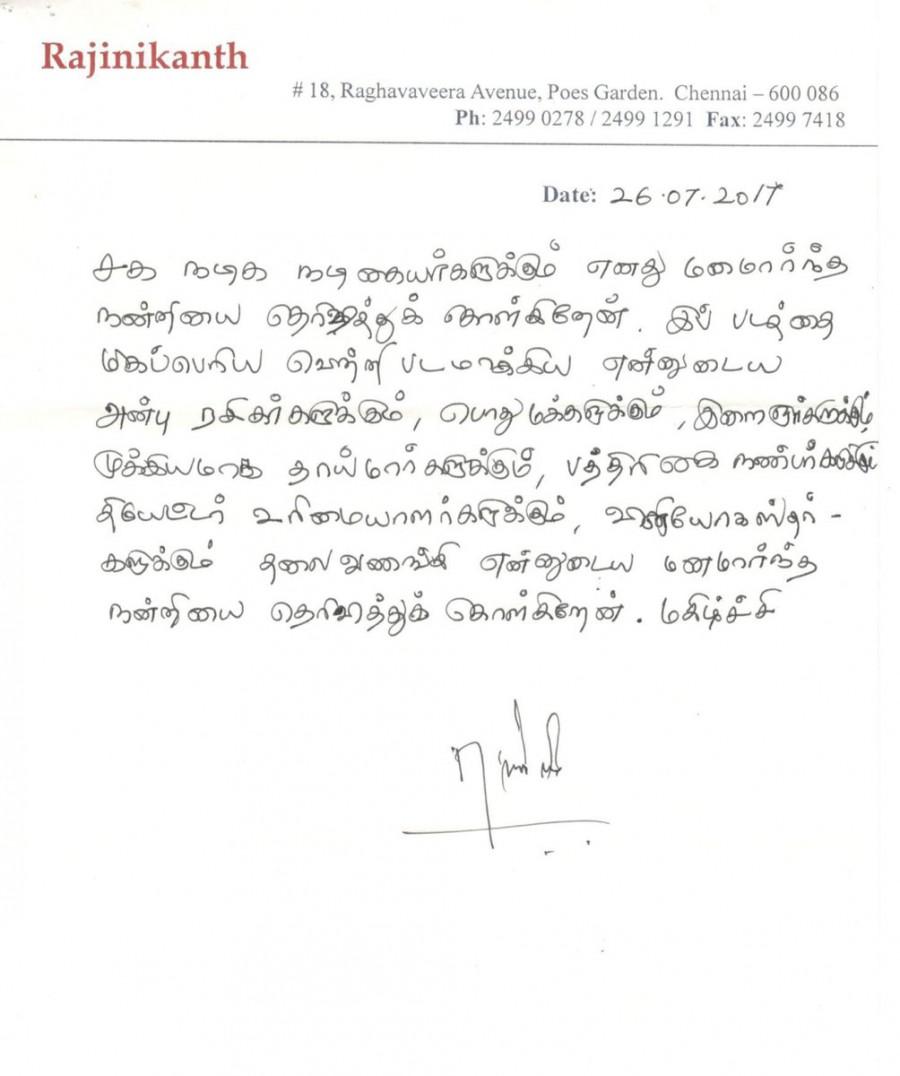 Rajinikanth
# 18, Raghavaveera Avenue, Poes Garden. Chennai – 600 086
Ph: 2499 0278 / 2499 1291 Fax: 2499 7418
Date: 26.07.2017
சக நடிக நடிகையர்களுக்கும் எனது மனமார்ந்த
நன்றியை தெரிவித்துக் கொள்கிறேன். இப் படத்தை
மிகப்பெரிய வெற்றி படமாக்கிய என்னுடைய
அன்பு ரசிகர்களுக்கும், பொதுமக்களுக்கும், இளைஞர்களுக்கும்
முக்கியமாக தாய்மார்களுக்கும், பத்திரிகை நண்பர்களுக்கும்
தியேட்டர் உரிமையாளர்களுக்கும், வினியோகஸ்தர் -
களுக்கும் தலைவணங்கி என்னுடைய மனமார்ந்த
நன்றியை தெரிவித்துக் கொள்கிறேன். மகிழ்ச்சி